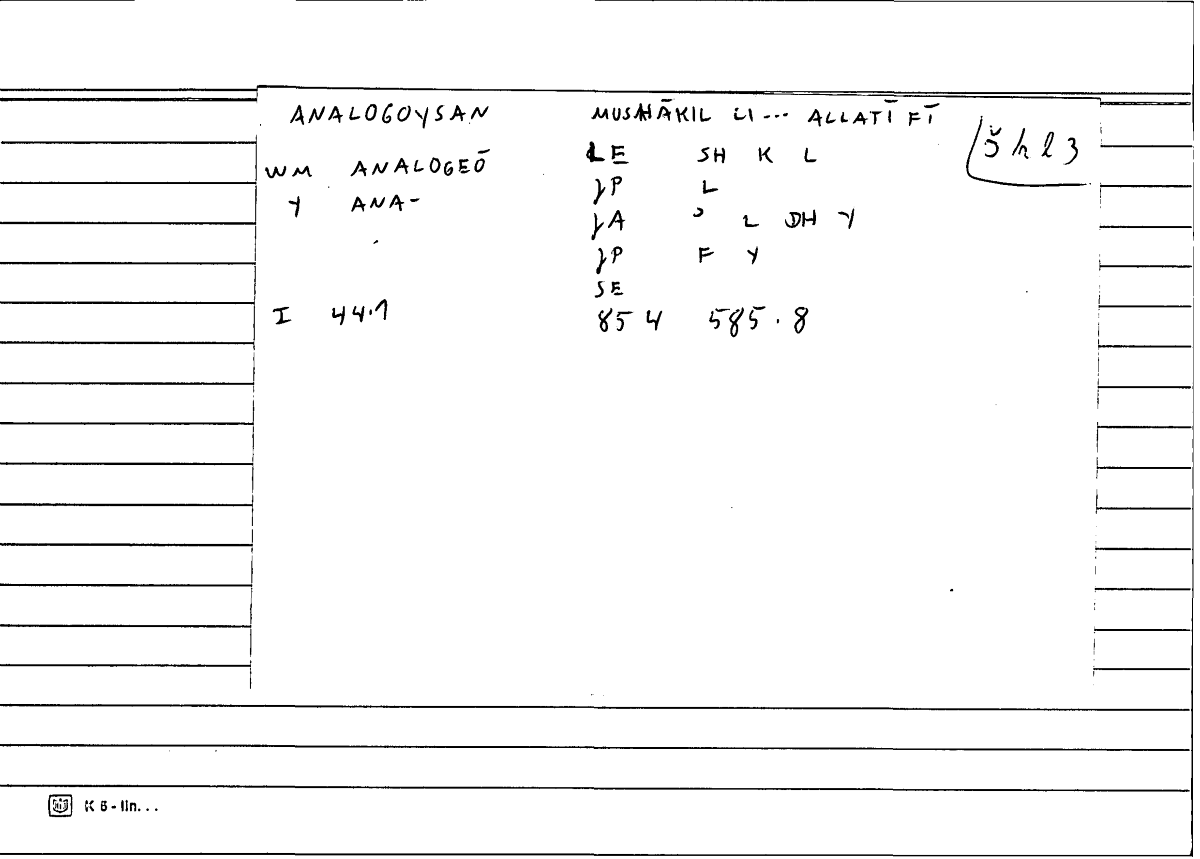 ANALOGOYSAN MUSHĀKIL LI... ALLATĪ FĪ
škl3
WM ANALOGEŌ LE SH K L
Y ANA- JP L
JA ʾ L DH Y
JP F Y
SE
I 44.1 854 585.8
K 6 - lin...